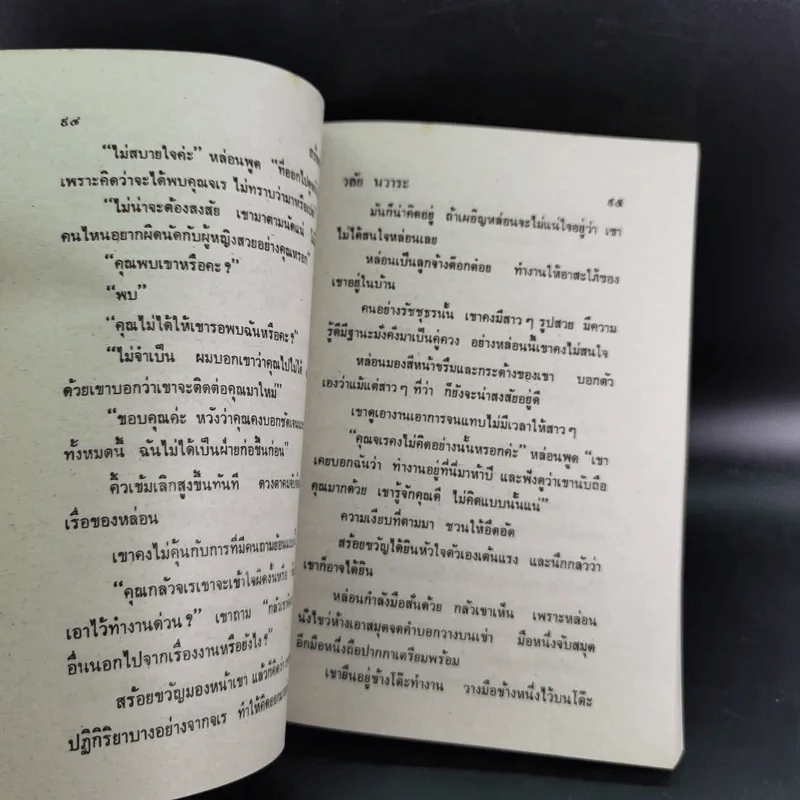 ๙๔
“ไม่สบายใจค่ะ” หล่อนพูด “ที่ออกไป
เพราะคิดว่าจะได้พบคุณจเร ไม่ทราบว่ามาหรือ
“ไม่น่าจะต้องสงสัย เขามาตามนัดแน่
คนไหนอยากผิดนัดกับผู้หญิงสวยอย่างคุณหรอก”
“คุณพบเขาหรือคะ?”
“พบ”
“คุณไม่ได้ให้เขารอพบฉันหรือคะ?”
“ไม่จำเป็น ผมบอกเขาว่าคุณไปไม่ได้
ด้วยเขาบอกว่าเขาจะติดต่อคุณมาใหม่”
“ขอบคุณค่ะ หวังว่าคุณคงบอกชัดเจน
ทั้งหมดนี้ ฉันไม่ได้เป็นฝ่ายก่อขึ้นก่อน”
คิ้วเข้มเลิกสูงขึ้นทันที ดวงตาคม
เรื่อของหล่อน
เขาคงไม่คุ้นกับการที่มีคนถามย้อนแบบ
“คุณกลัวจเรเขาจะเข้าใจผิดงั้นหรือ
เอาไว้ทำงานด่วน?” เขาถาม “กลัวเขา
อื่นนอกไปจากเรื่องงานหรือยังไง?”
สร้อยขวัญมองหน้าเขา แล้วก็คิดว่า
ปฏิกิริยาบางอย่างจากจเร ทำให้คิดออก
วลัย นวาระ
๙๕
มันก็น่าคิดอยู่ ถ้าเผอิญหล่อนจะไม่แน่ใจอยู่ว่า เขา
ไม่ได้สนใจหล่อนเลย
หล่อนเป็นลูกจ้างต๊อกต๋อย ทำงานให้อาสะใภ้ของ
เขาอยู่ในบ้าน
คนอย่างรัชชุธรนั้น เขาคงมีสาวๆ รูปสวย มีความ
รู้ดีมีฐานะมั่งคั่งมาเป็นคู่ควง อย่างหล่อนนี้เขาคงไม่สนใจ
หล่อนมองสีหน้าขรึมและกระด้างของเขา บอกตัว
เองว่าแม้แต่สาวๆ ที่ว่า ก็ยังจะน่าสงสัยอยู่ดี
เขาดูเอางานเอาการจนแทบไม่มีเวลาให้สาวๆ
“คุณจเรคงไม่คิดอย่างนั้นหรอกค่ะ” หล่อนพูด “เขา
เคยบอกฉันว่า ทำงานอยู่ที่นี่มาห้าปี และฟังดูว่าเขานับถือ
คุณมากด้วย เขารู้จักคุณดี ไม่คิดแบบนั้นแน่”
ความเงียบที่ตามมา ชวนให้อึดอัด
สร้อยขวัญได้ยินหัวใจตัวเองเต้นแรง และนึกกลัวว่า
เขาก็อาจได้ยิน
หล่อนกำลังมือสั่นด้วย กลัวเขาเห็น เพราะหล่อน
นั่งไขว่ห้างเอาสมุดจดคำบอกวางบนเข่า มือหนึ่งจับสมุด
อีกมือหนึ่งถือปากกาเตรียมพร้อม
เขายืนอยู่ข้างโต๊ะทำงาน วางมือข้างหนึ่งไว้บนโต๊ะ